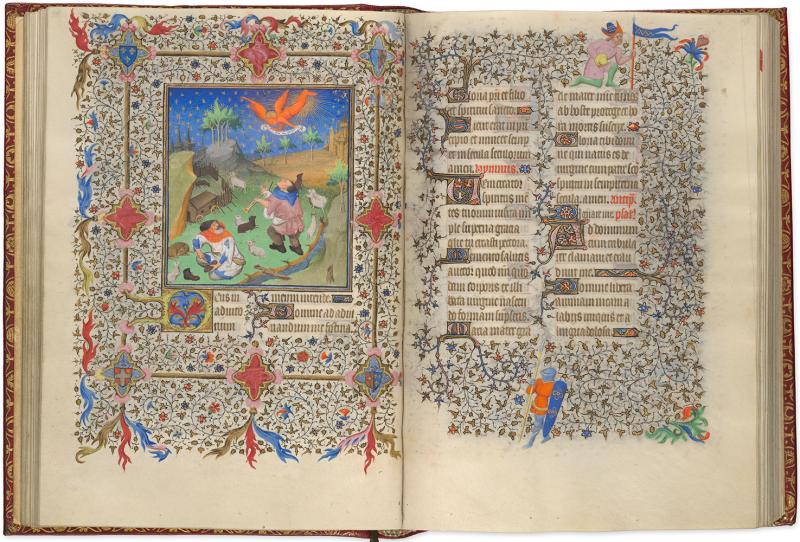 Deus in
adiuto
rium
meum intende.
Domine ad adiu
uandum me festina.
Gloria pri et filio
et spui sancto.
Sicut erat in prin
cipio et nunc et semp
et in secula seculorum
amen. hympnus.
Veni creator
spiritus men
tes tuorum uisita im
ple superna gratia
que tu creasti pectora.
Memento salutis
auctor quod nostri
dam corporis ex illi
bata uirgine nascen
do formam sumpseris.
Maria mater gra
cie mater mie tu nos
ab hoste protege et ho
ra mortis suscipe.
Gloria tibi domi
ne qui natus es de
uirgine cum patre et
spiritu in sempiterna
amen. antiph.
psal.
Ad dominum
cum tribula
rer clamaui et exau
Domine libera
animam meam a
labiis iniquis et a
lingua dolosa.